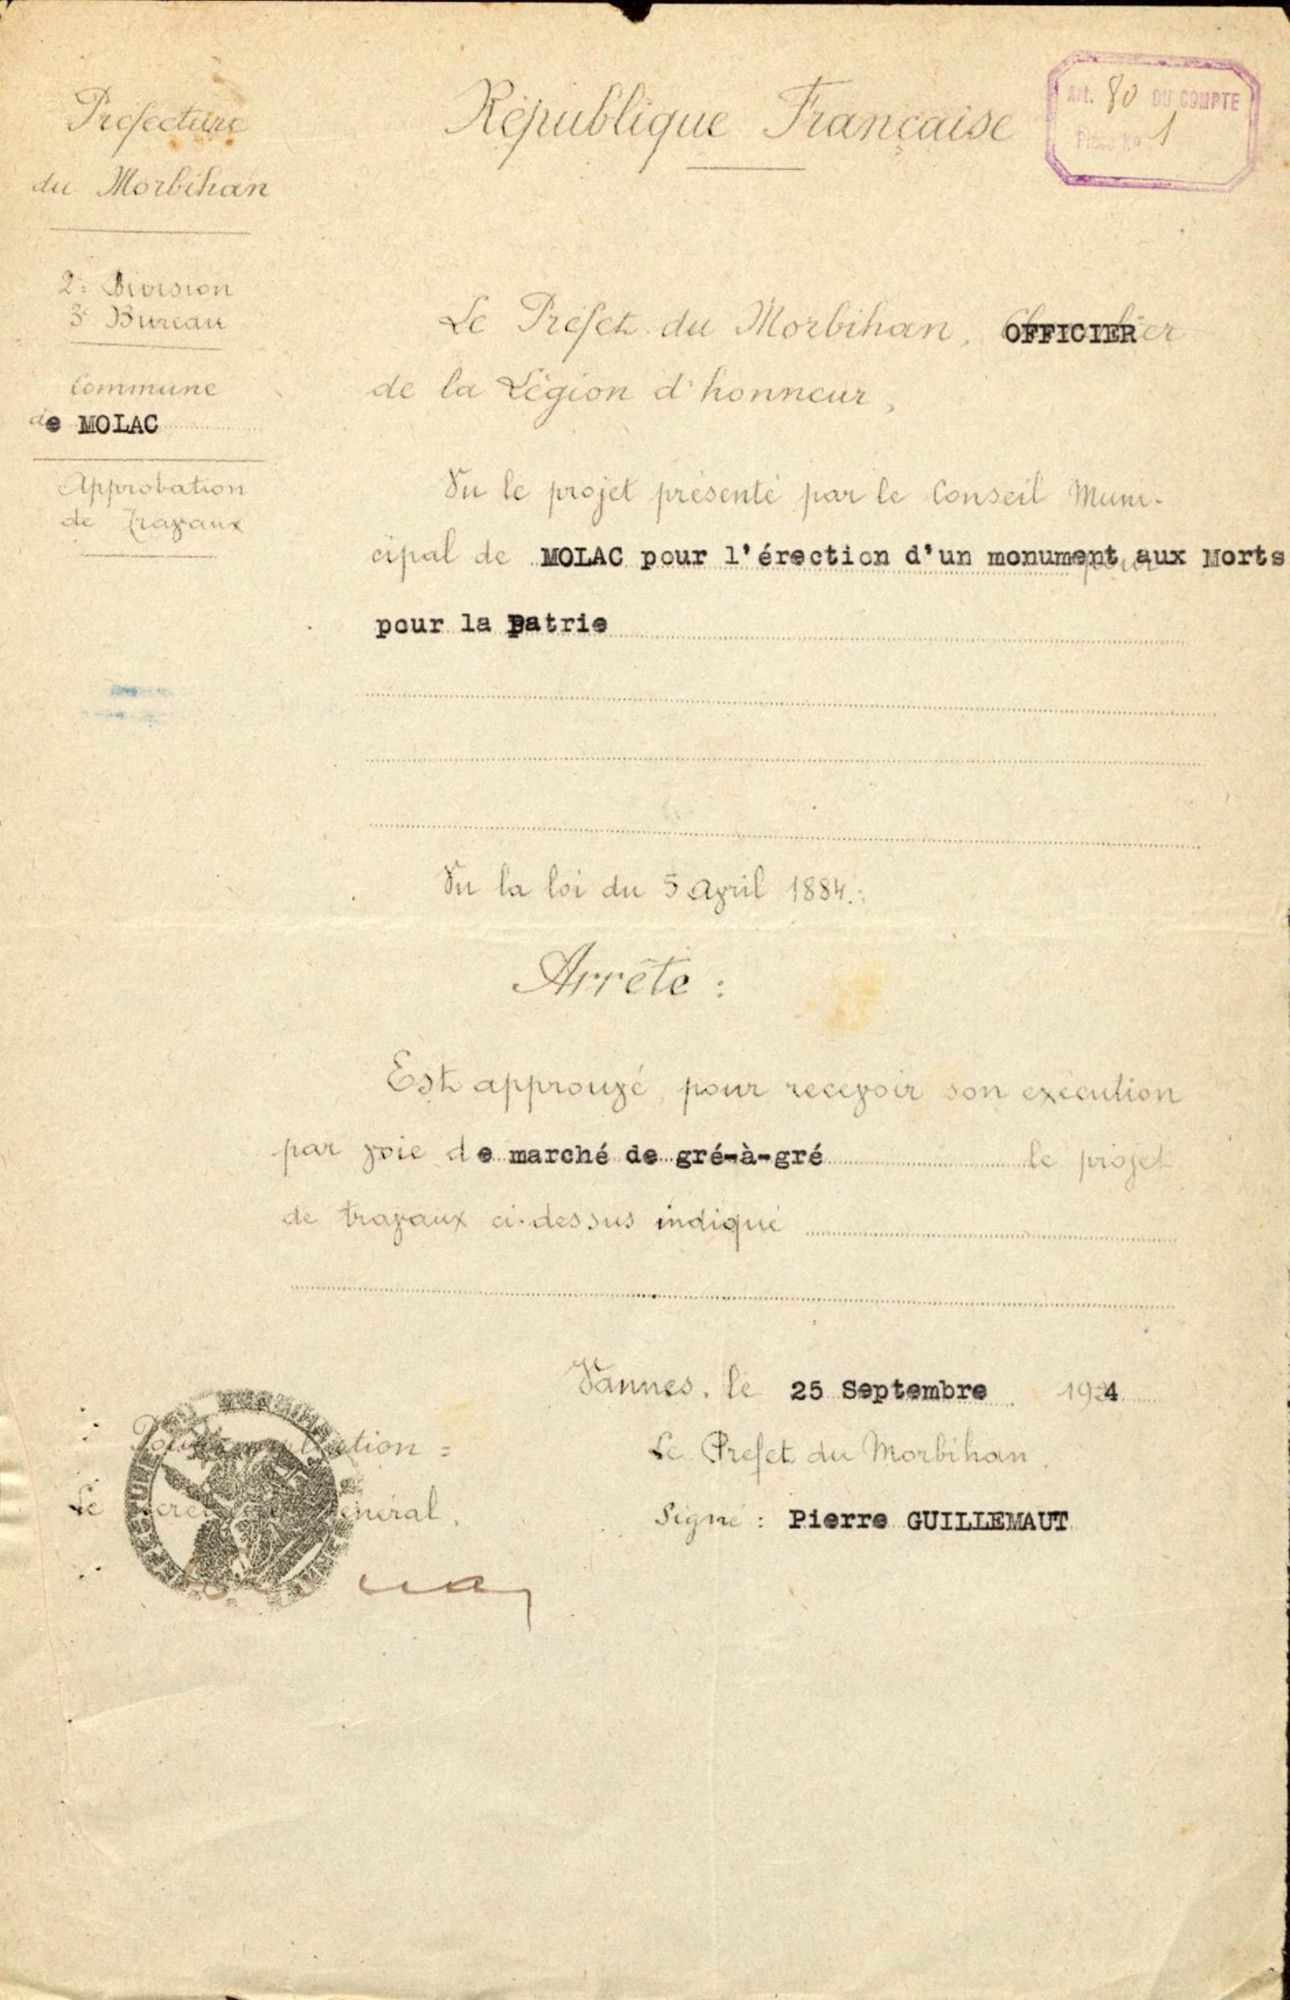 Préfecture
du Morbihan
2e Division
3e Bureau
Commune
de MOLAC
Approbation
de Travaux
République Française
Art. 80 DU COMPTE
Pièce No 1
Le Préfet du Morbihan, OFFICIER
de la Légion d'honneur,
Vu le projet présenté par le Conseil Muni-
cipal de MOLAC pour l'érection d'un monument aux Morts
pour la Patrie
Vu la loi du 5 Avril 1884.;
Arrête :
Est approuvé, pour recevoir son exécution
par voie de marché de gré-à-gré le projet
de travaux ci-dessus indiqué
Vannes, le 25 Septembre 1924
Le Préfet du Morbihan,
Signé : Pierre GUILLEMAUT
Pour ampliation =
Le Secrétaire Général,